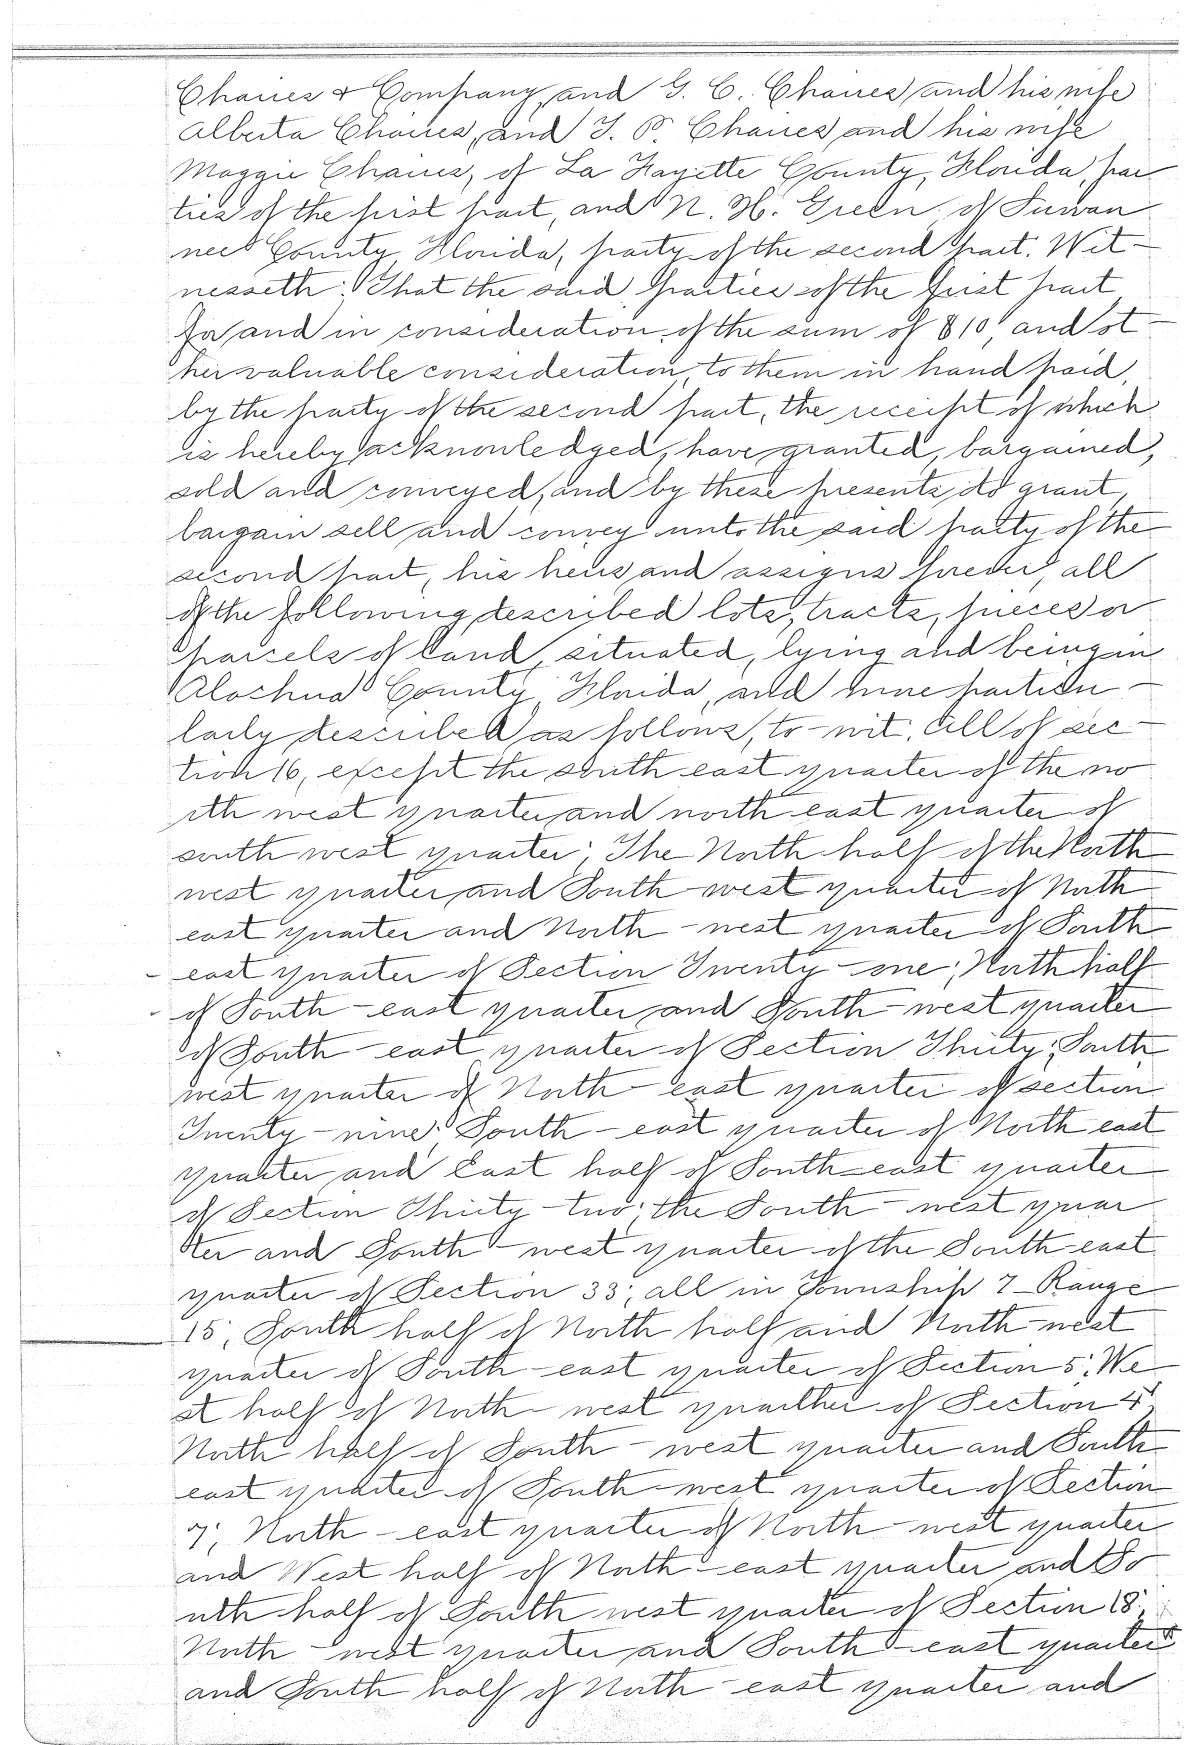 Chaires & Company, and G. C. Chaires and his wife
Alberta Chaires, and T. P. Chaires and his wife
Maggie Chaires, of La Fayette County, Florida, par
ties of the first part, and N. H. Green of Suwan
nee County, Florida, party of the second part. Wit-
nesseth: That the said parties of the first part,
for and in consideration of the sum of $10, and ot-
her valuable consideration, to them in hand paid,
by the party of the second part, the receipt of which
is hereby acknowledged, have granted, bargained,
sold and conveyed, and by these presents do grant,
bargain sell and convey unto the said party of the
second part, his heirs and assigns forever, all
of the following described lots, tracts, pieces or
parcels of land, situated, lying and being in
Alachua County, Florida, and more particu-
larly described as follows, to-wit: All of sec-
tion 16, except the south east quarter of the no
rth west quarter and north east quarter of
south west quarter; The North half of the North
west quarter and South-west quarter of North
east quarter and North-west quarter of South
east quarter of Section Twenty-one; North half
of South-east quarter and South-west quarter
of South-east quarter of Section Thirty; South
west quarter of North-east quarter of section
Twenty-nine; South-east quarter of North east
quarter and East half of South east quarter
of Section Thirty-two; the South-west quar
ter and South-west quarter of the South-east
quarter of Section 33; all in Township 7 - Range
15; South half of North half and North-west
quarter of South-east quarter of Section 5; We
st half of North-west quarther of Section 4;
North half of South-west quarter and South
east quarter of South-west quarter of Section
7; North-east quarter of North-west quarter
and West half of North-east quarter and So
uth half of South west quarter of Section 18;
North-west quarter and South-east quarter
and South half of North-east quarter and